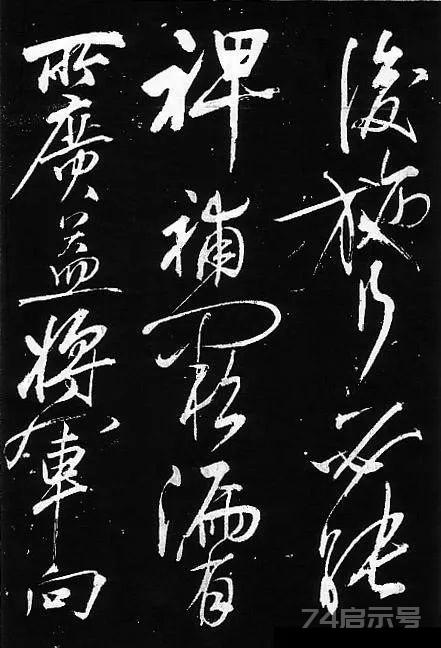 後施行必能
裨補闕漏有
所廣益將軍向
74启示号